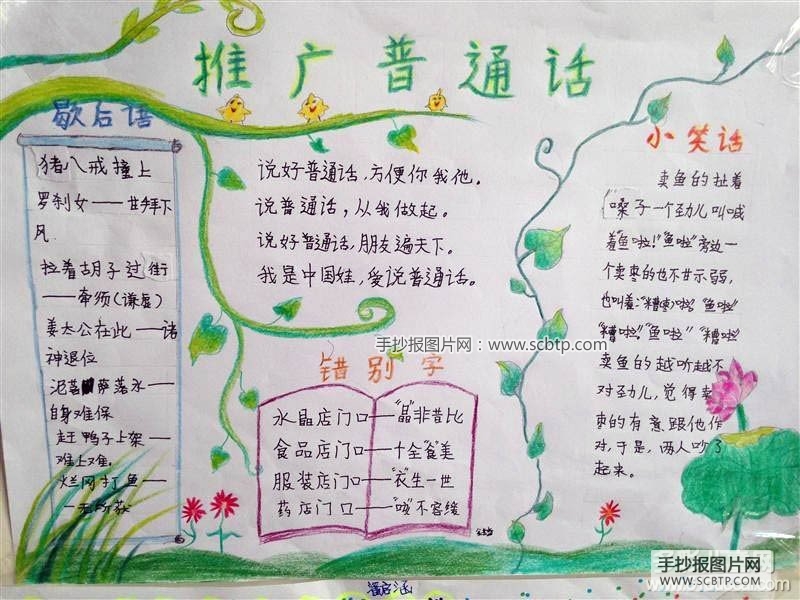 推广普通话
歇后语
猪八戒撞上
罗刹女——甘拜下
凡
拉着胡子过街
——牵须(谦虚)
姜太公在此——诸
神退位
泥菩萨落水——
自身难保
赶鸭子上架——
难上难。
烂网打鱼——
一无所获
说好普通话,方便你我他。
说普通话,从我做起。
说好普通话,朋友遍天下。
我是中国娃,爱说普通话。
手抄报图片网:www.scbtp.com
错别字
水晶店门口——“晶”非昔比
食品店门口——十全“食”美
服装店门口——“衣”生一世
药店门口——“咳”不容缓
小笑话
卖鱼的扯着
嗓子一个劲儿叫喊
着“鱼啦!”“鱼啦”旁边一
个卖枣的也不甘示弱,
也叫着:“糟枣)啦!“鱼啦”
“糟啦”“鱼啦”“糟啦
卖鱼的越听越不
对劲儿,觉得卖
枣的有意跟他作
对,于是,两人吵了
起来。
手抄报图片网
WWW.SCBTP.COM